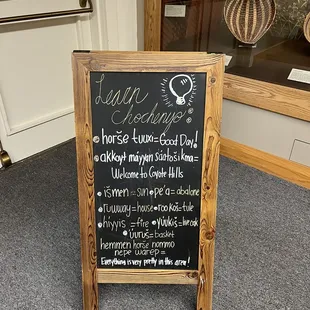 Learn
Chochenyo!
• horše tuuxi = Good Day!
• akkoy máyyen sáatoši kma =
Welcome to Coyote Hills
• išmen = sun • pe'a = abalone
• ruwway = house • rookoš = tule
• hiyyiš = fire • yúukiš = live oak
• úuruš = basket
hemmen horše nommo
nepe warep =
Everything is very pretty in this area!